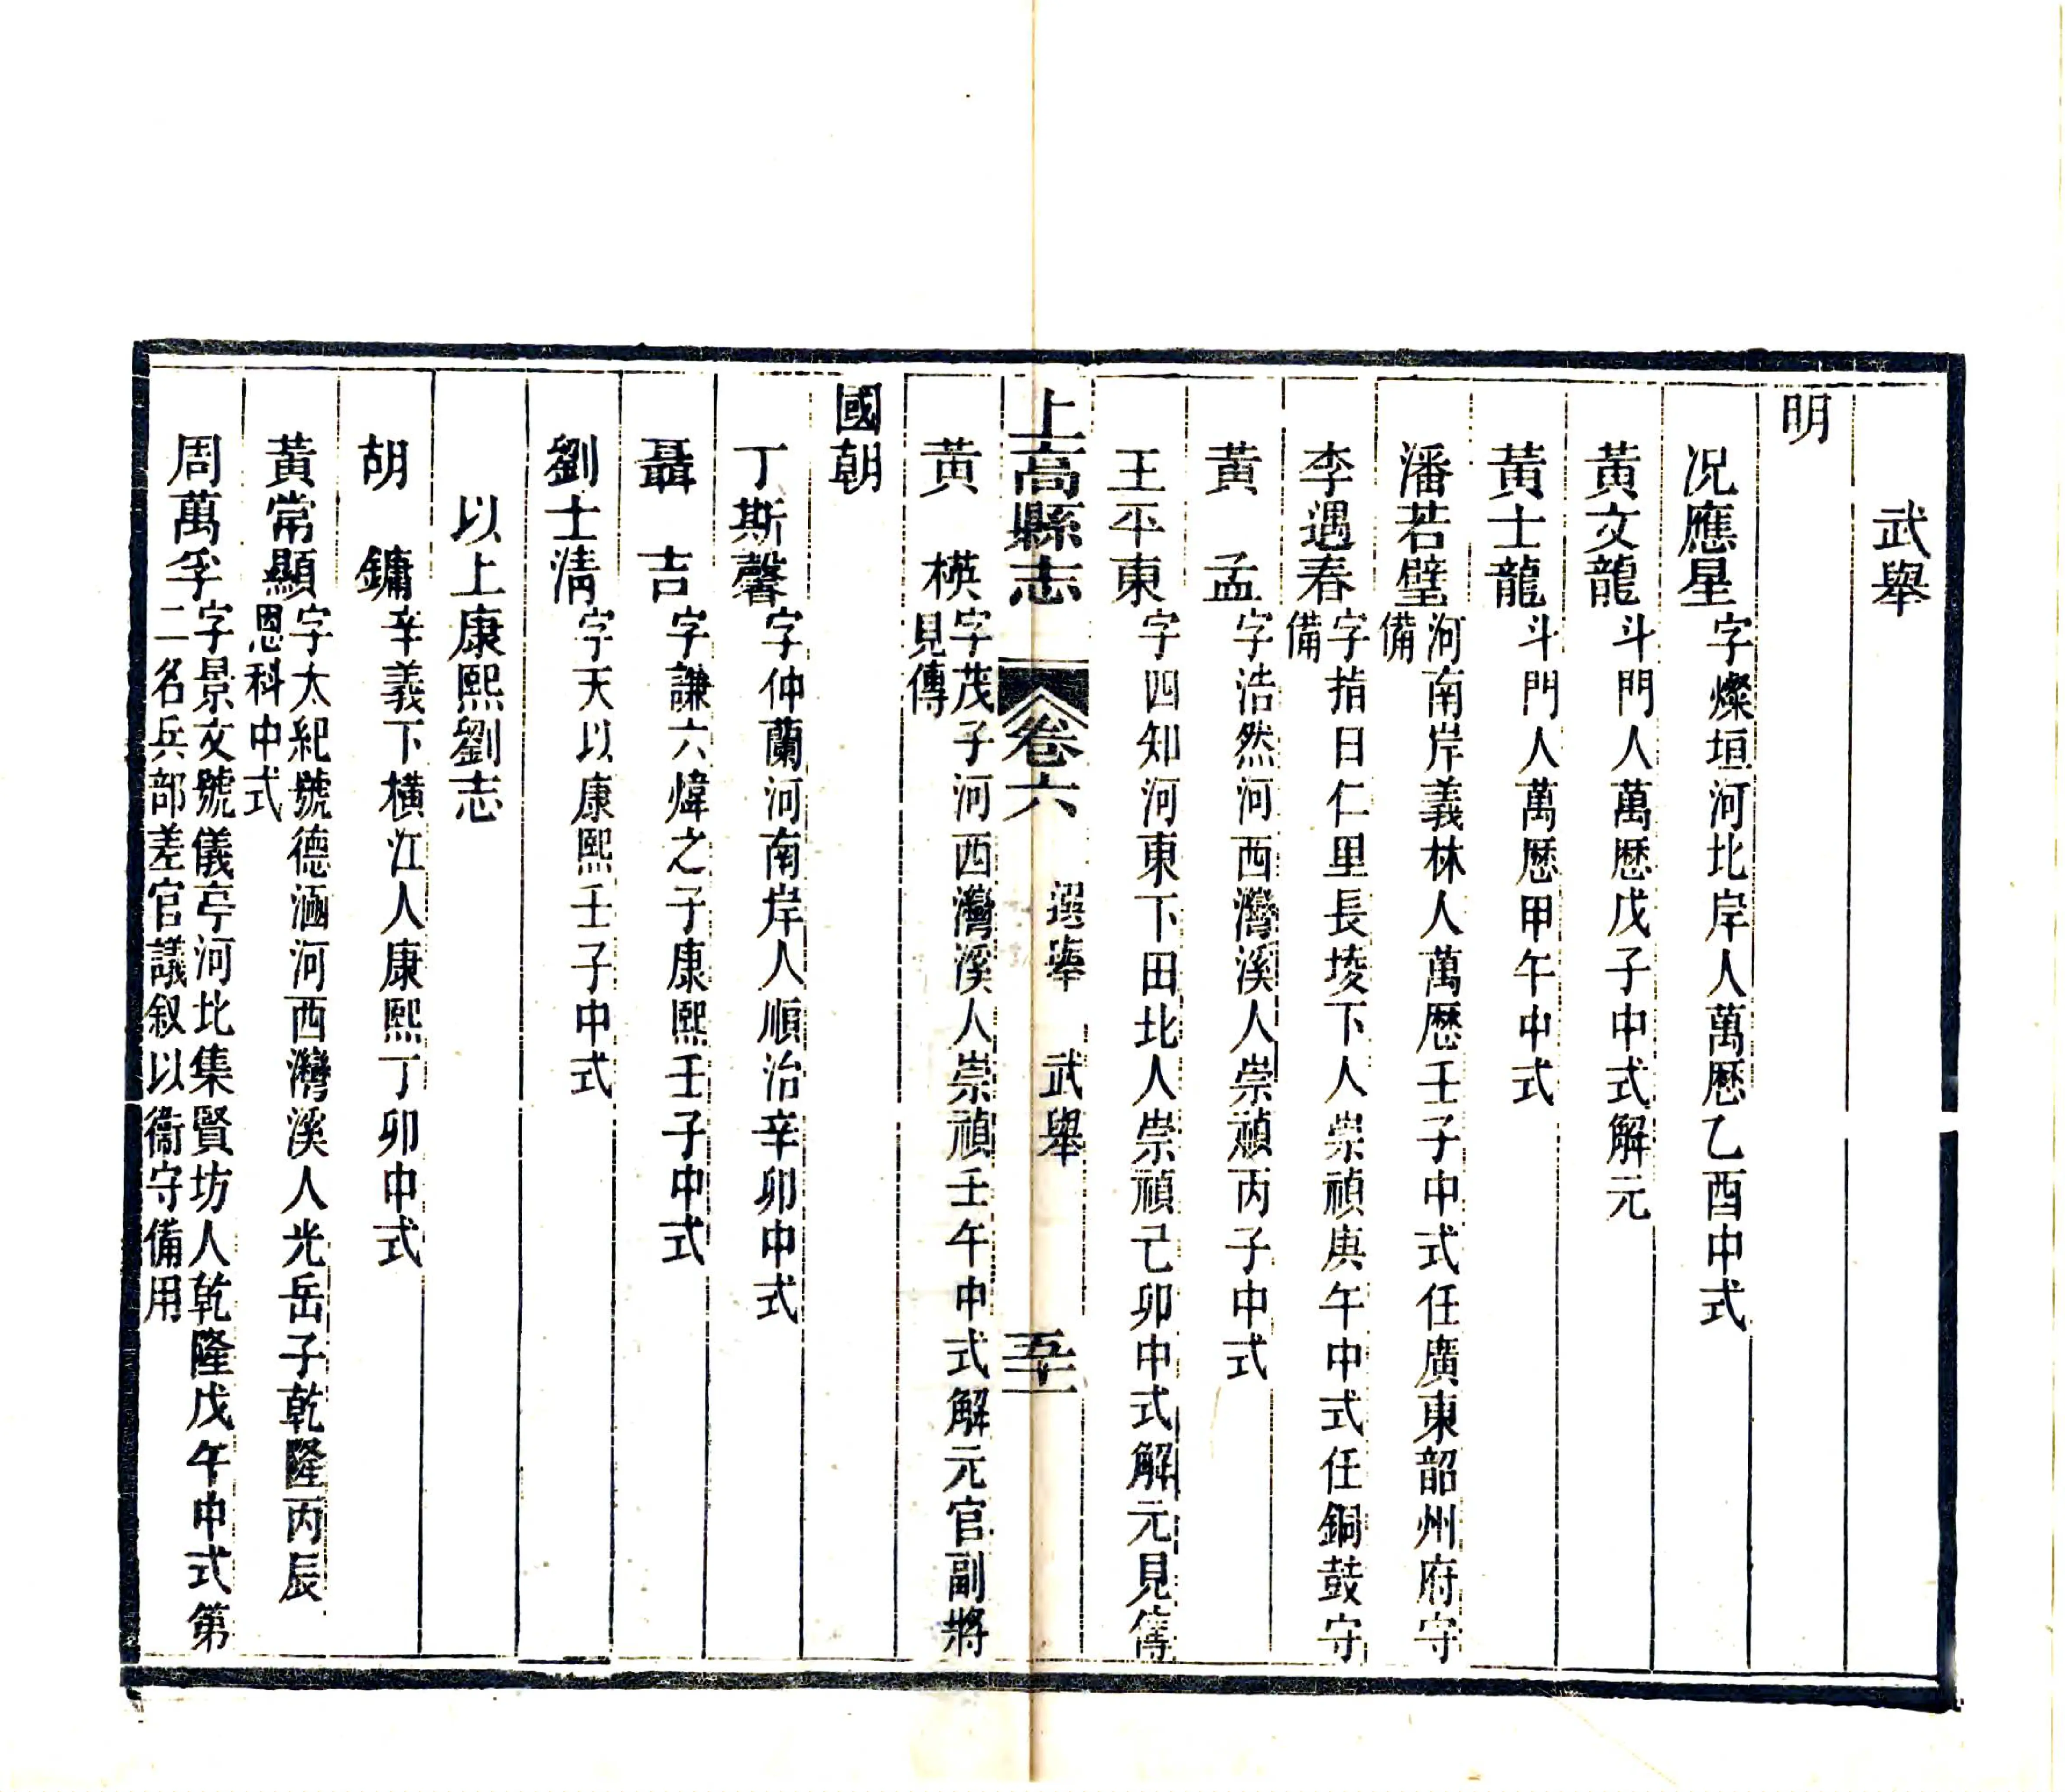 武舉
明
况應星字燦垣河北岸人萬歷乙酉中式
黃文龍斗門人萬歷戊子中式解元
黃士龍斗門人萬歷甲午中式
潘若璧河南岸義林人萬歷壬子中式任廣東韶州府守
備
李遇春字指日仁里長埈下人崇禎庚午中式任銅鼓守
備
黃孟字浩然河西灣溪人崇禎丙子中式
王平東字四知河東下田北人崇禎己卯中式解元見傳
上高縣志 卷六 選舉 武舉 五十一
黃橫字茂子河西灣溪人崇禎壬午中式解元官副將
見傳
國朝
丁斯馨字仲蘭河南岸人順治辛卯中式
聶吉字謙六煒之子康熙壬子中式
劉士清字天以康熙壬子中式
以上康熙劉志
胡鏞辛義下橫江人康熙丁卯中式
黃常顯字太紀號德涵河西灣溪人光岳子乾隆丙辰
恩科中式
周萬孚字景文號儀亭河北集賢坊人乾隆戊午中式第
二名兵部差官議叙以衞守備用